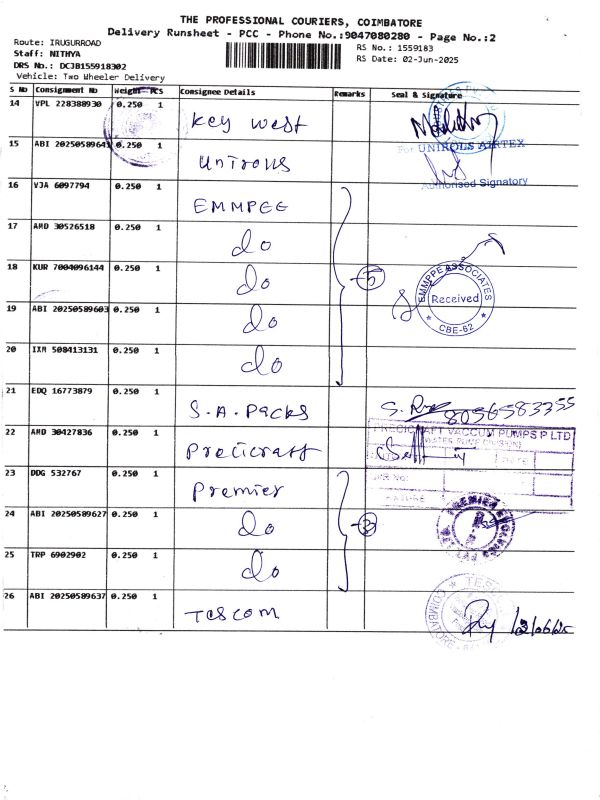 THE PROFESSIONAL COURIERS, COIMBATORE
Delivery Runsheet - PCC - Phone No.:9047080280 - Page No.:2
Route: IRUGURROAD
Staff: NITHYA
DRS No.: DCJB155918302
Vehicle: Two Wheeler Delivery
RS No.: 1559183
RS Date: 02-Jun-2025
S No Consignment No Weight PCS Consignee Details Remarks Seal & Signature
14 VPL 228388930 0.250 1 Key west
15 ABI 2025058964 0.250 1 Unirols
For UNIROLS AIRTEX
Authorised Signatory
16 VJA 6097794 0.250 1 EMMPEE
17 AMD 30526518 0.250 1 do
18 KUR 7004096144 0.250 1 do 5
EMMPPE ASSOCIATES
Received
CBE-62
19 ABI 20250589603 0.250 1 do
20 IXM 508413131 0.250 1 do
21 EDQ 16773879 0.250 1 S.A.Packs 8056583355
22 AMD 30427836 0.250 1 Precicraft
PRECICRAFT VACCUM PUMPS P LTD
23 DDG 532767 0.250 1 Premier
24 ABI 20250589627 0.250 1 do 3
25 TRP 6902902 0.250 1 do
26 ABI 20250589637 0.250 1 Tescom
COIMBATORE